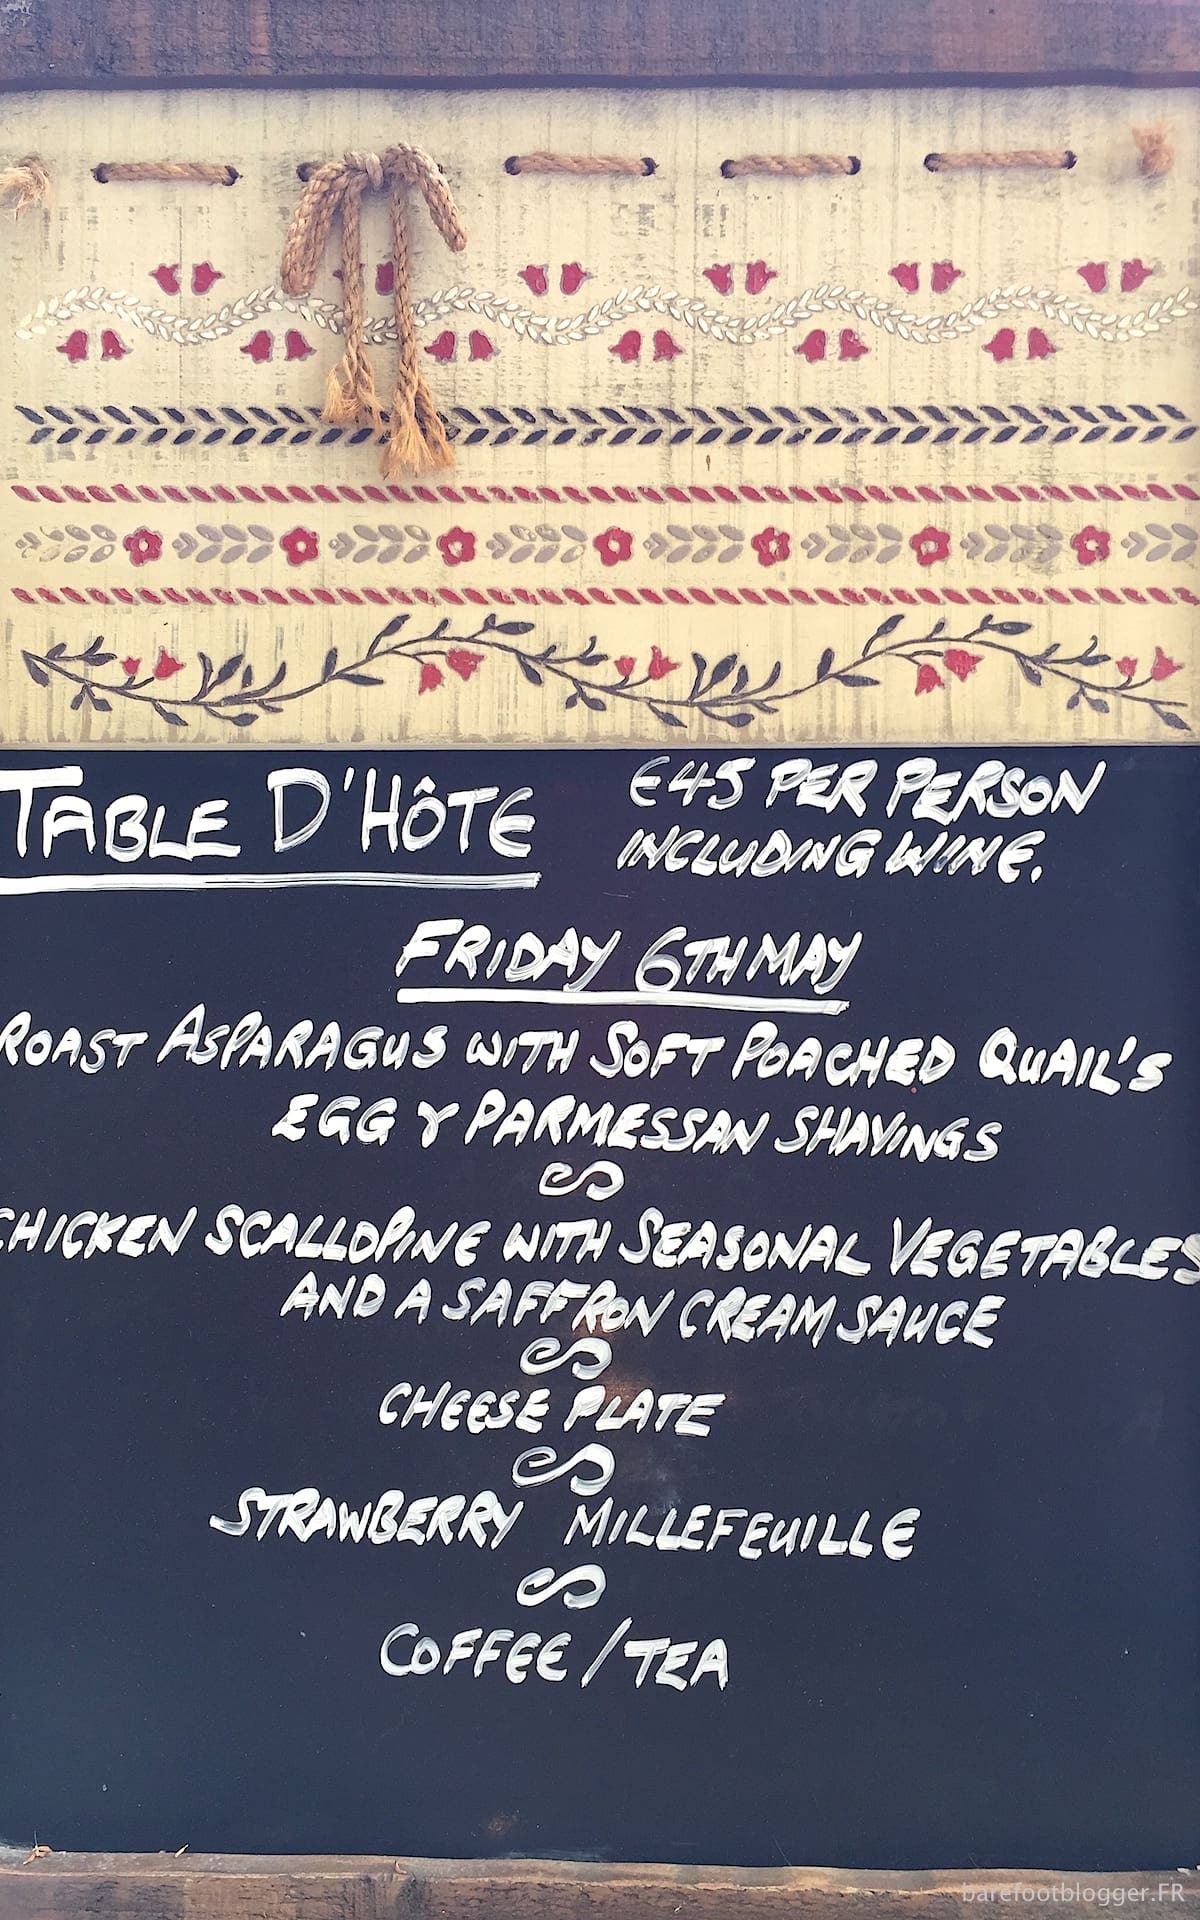 TABLE D'HÔTE
€45 PER PERSON
INCLUDING WINE.
FRIDAY 6TH MAY
ROAST ASPARAGUS WITH SOFT POACHED QUAIL'S
EGG & PARMESSAN SHAVINGS
CHICKEN SCALLOPINE WITH SEASONAL VEGETABLES
AND A SAFFRON CREAM SAUCE
CHEESE PLATE
STRAWBERRY MILLEFEUILLE
COFFEE / TEA
barefootblogger.FR